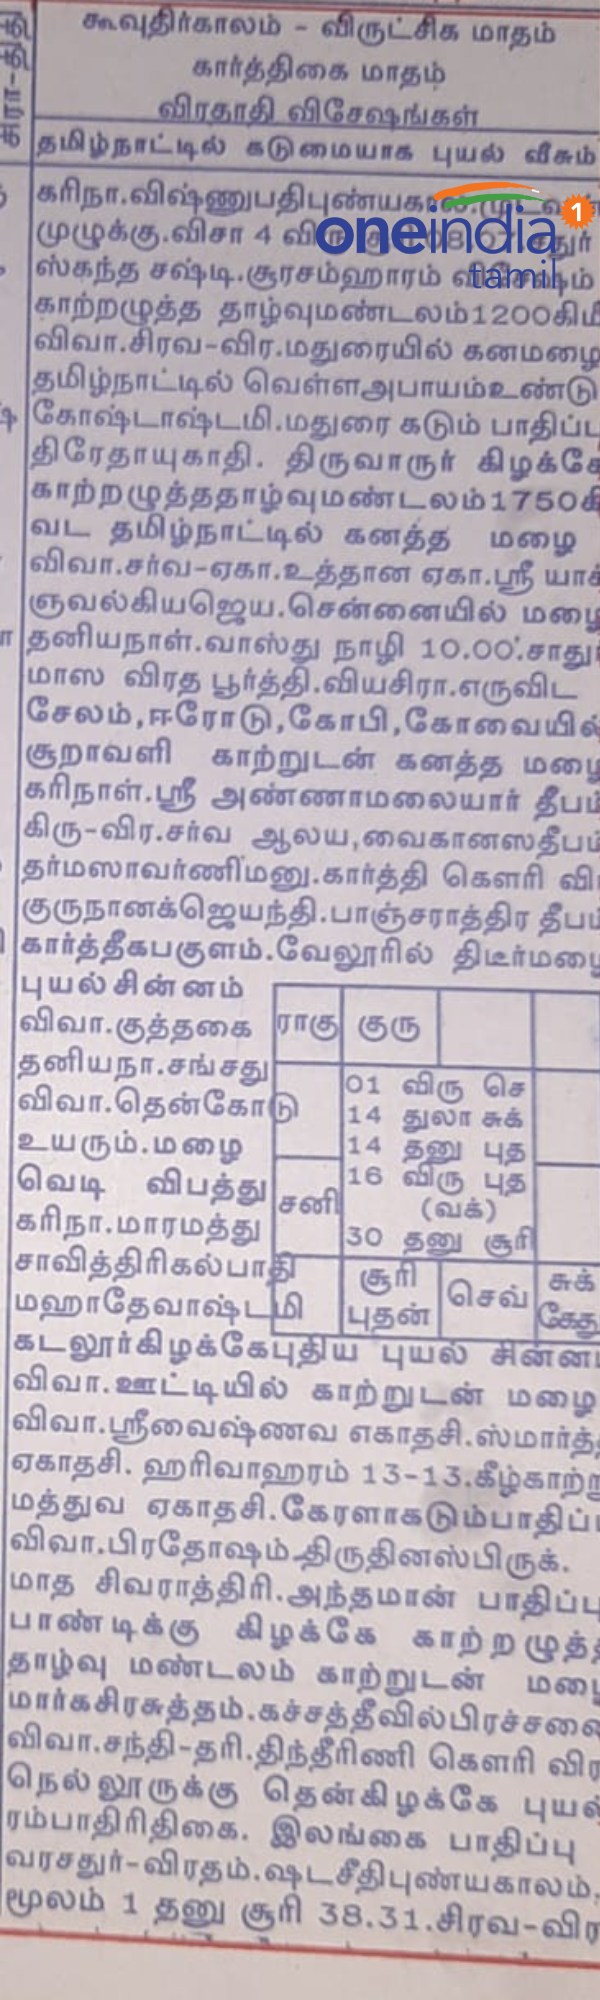 கூவுதிர்காலம் - விருட்சிக மாதம்
கார்த்திகை மாதம்
விரதாதி விசேஷங்கள்
தமிழ்நாட்டில் கடுமையாக புயல் வீசும்
கரிநா.விஷ்ணுபதிபுண்யகால
முழுக்கு.விசா 4
oneindia
tamil
1
ஸ்கந்த சஷ்டி.சூரசம்ஹாரம்
காற்றழுத்த தாழ்வுமண்டலம்1200கிமீ
விவா.சிரவ-விர.மதுரையில் கனமழை
தமிழ்நாட்டில் வெள்ளஅபாயம்உண்டு
கோஷ்டாஷ்டமி.மதுரை கடும் பாதிப்பு
திரேதாயுகாதி. திருவாரூர் கிழக்கே
காற்றழுத்ததாழ்வுமண்டலம்1750கி
வட தமிழ்நாட்டில் கனத்த மழை
விவா.சர்வ-ஏகா.உத்தான ஏகா.ஸ்ரீ யாக்
ஞவல்கியஜெய.சென்னையில் மழை
தனியநாள்.வாஸ்து நாழி 10.00.சாதுர்
மாஸ விரத பூர்த்தி.வியசிரா.எருவிட
சேலம்,ஈரோடு,கோபி,கோவையில்
சூறாவளி காற்றுடன் கனத்த மழை
கரிநாள்.ஸ்ரீ அண்ணாமலையார் தீபம்
கிரு-விர.சர்வ ஆலய,வைகானஸதீபம்
தர்மஸாவர்ணிமனு.கார்த்தி கௌரி வி
குருநானக்ஜெயந்தி.பாஞ்சராத்திர தீபம்
கார்த்தீகபகுளம்.வேலூரில் திடீர்மழை
புயல்சின்னம்
விவா.குத்தகை
தனியநா.சங்சது
விவா.தென்கோடு
உயரும்.மழை
வெடி விபத்து
கரிநா.மாரமத்து
சாவித்திரிகல்பாதி
மஹாதேவாஷ்டமி
ராகு குரு
01 விரு செ
14 துலா சுக்
14 தனு புத
16 விரு புத
(வக்)
30 தனு சூரி
சனி
சூரி
புதன்
செவ்
சுக்
கேது
கடலூர்கிழக்கேபுதிய புயல் சின்ன
விவா.ஊட்டியில் காற்றுடன் மழை
விவா.ஸ்ரீவைஷ்ணவ எகாதசி.ஸ்மார்த்த
ஏகாதசி. ஹரிவாஹரம் 13-13.கீழ்காற்று
மத்துவ ஏகாதசி.கேரளாகடும்பாதிப்பு
விவா.பிரதோஷம்-திருதினஸ்பிருக்.
மாத சிவராத்திரி.அந்தமான் பாதிப்பு
பாண்டிக்கு கிழக்கே காற்றழுத்த
தாழ்வு மண்டலம் காற்றுடன் மழை
மார்கசிரசுத்தம்.கச்சத்தீவில்பிரச்சனை
விவா.சந்தி-தரி.திந்தீரிணி கௌரி விர
நெல்லூருக்கு தென்கிழக்கே புயல்
ரம்பாதிரிதிகை. இலங்கை பாதிப்பு
வரசதுர்-விரதம்.ஷடசீதிபுண்யகாலம்.
மூலம் 1 தனு சூரி 38.31.சிரவ-விர